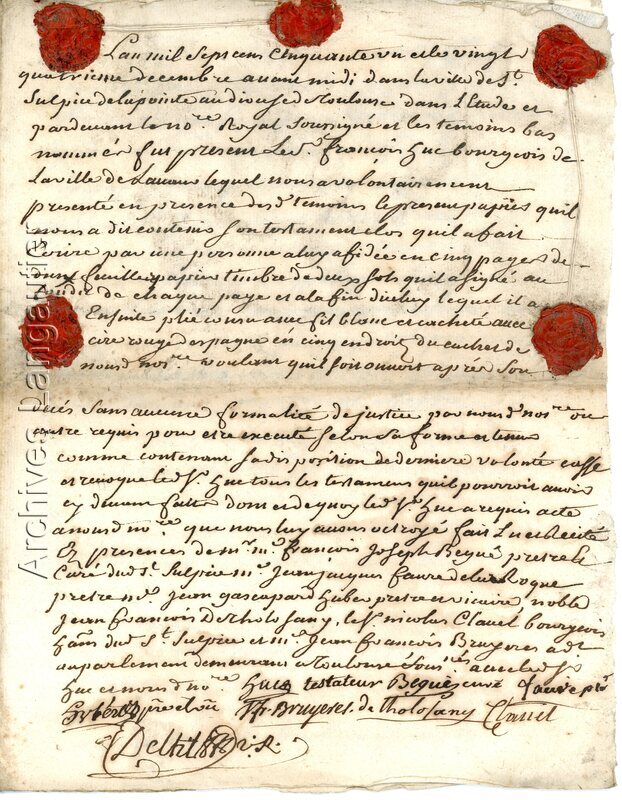 L'an mil Sept cens Cinquante un et le vingt
quatrieme decembre avant midi dans la ville de St
Sulpice de la pointe au dioceze de Toulouse dans L'Etude et
pardevant le nore Royal Soussigné et les temoins bas
nommés fut present le Sr François huc bourgeois de
la ville de Lavaur lequel nous a volontairement
presenté en presence des d temoins le present papier quil
nous a dit contenir son testament clos quil a fait
ecrire par une personne a luy afidée en cinq pages de
feuille papier timbré de deux sols quil a signé au
de chaque page et a la fin d'icelluy lequel il a
Ensuite plié cousu avec fil blanc et cacheté avec
cire rouge despagne en cinq endroits du cachet de
nous d nore voulant quil soit ouvert après Son
dués sans aucune formalité de justice par nous d nore ou
autre requis pour etre executé selon sa forme et teneur
comme contenant sa disposition de derniere volonté casse
et revoque led Sr huc tous les testamens quil pourroit avoir
cy devant faits dont et de quoy led Sr huc a requis acte
a nous d nore que nous luy avons octroyé fait Lu et Recité
Ez presences de mr me François Joseph Begué pretre et
Curé dud St Sulpice me Jean Jacques faure de la Roque
pretre me Jean gaspard huber pretre et vicaire, noble
Jean François De tholosany, le Sr nicolas Clauel bourgeois
hans dud St Sulpice et me Jean François Bruyeres adt
au parlement demeurant a Toulouse Sousnés avec led Sr
huc et nous d nore Huc testateur Begué curé faure ptre
Bruyeres. de Tholosany Clauel
Delhil
Archives Langautier